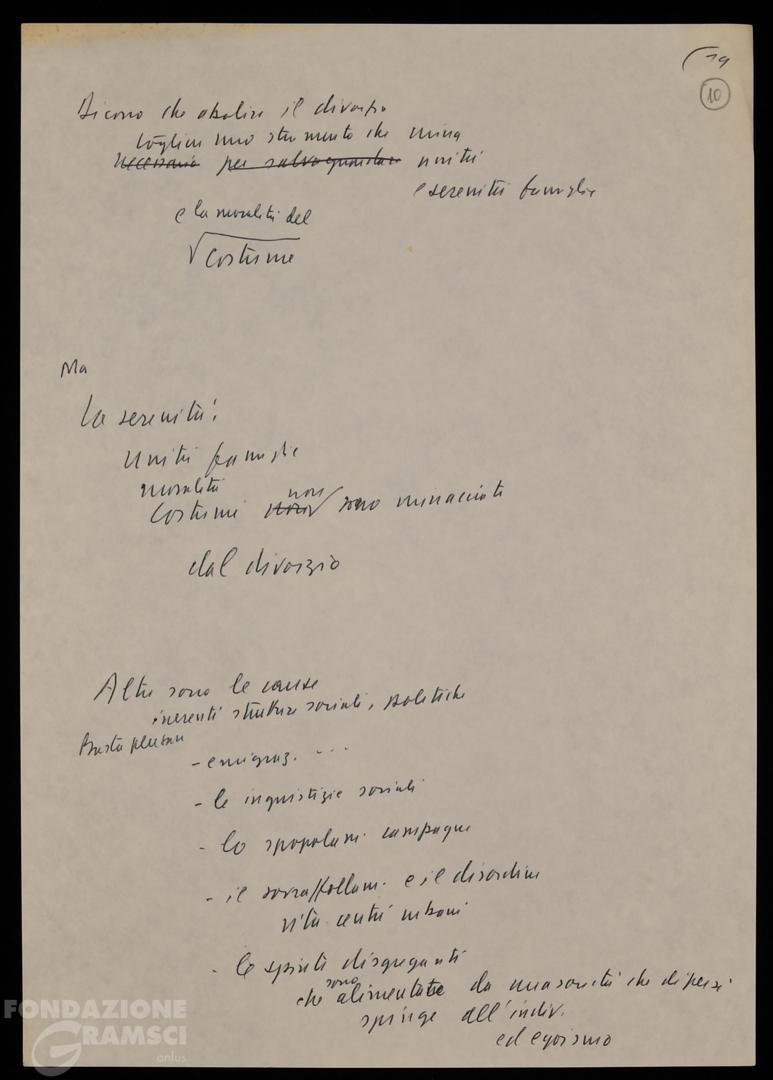 19
10
Dicono che abolire il divorzio
togliere uno strumento che mina
necessario per salvaguardare unità
e serenità famiglie
e la moralità del
costume
Ma
la serenità
unità famiglie
moralità
costumi non non sono minacciate
dal divorzio
Altre sono le cause
inerenti strutture sociali, politiche
Basta pensare
- emigraz. ...
- le ingiustizie sociali
- lo spopolam. campagne
- il sovraffollam. e il disordine
vita centri urbani
- le spinte disgreganti
che sono alimentate da una società che di per sé
spinge all'indiv.
ed egoismo
FONDAZIONE
GRAMSCI
onlus